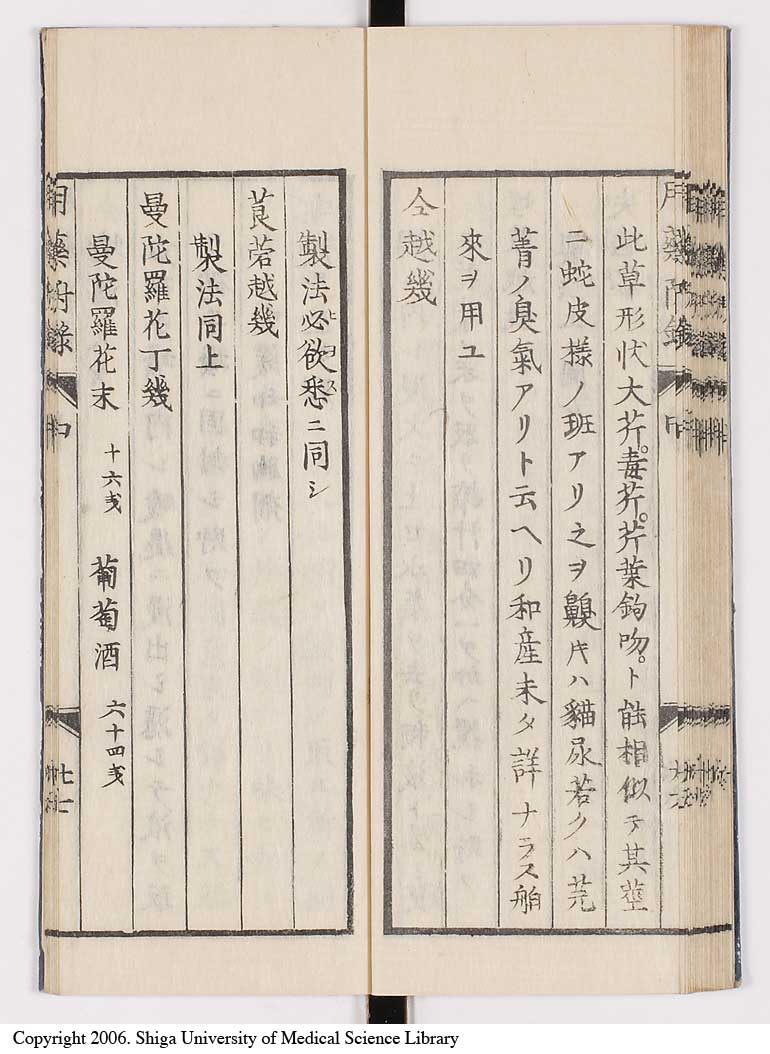 此草形狀大芹。毒芹。芹葉鉤吻。ト能相似テ其莖
ニ蛇皮様ノ班アリ之ヲ齅キハ貓尿若クハ芫
菁ノ臭氣アリト云ヘリ和產未タ詳ナラス舶
來ヲ用ユ
仝越幾
製法必欲悉ニ同シ
ヒヨス
莨菪越幾
製法同上
曼陀羅花丁幾
曼陀羅花末 十六戔 葡萄酒 六十四戔
用藥附錄
廿七
Copyright 2006. Shiga University of Medical Science Library